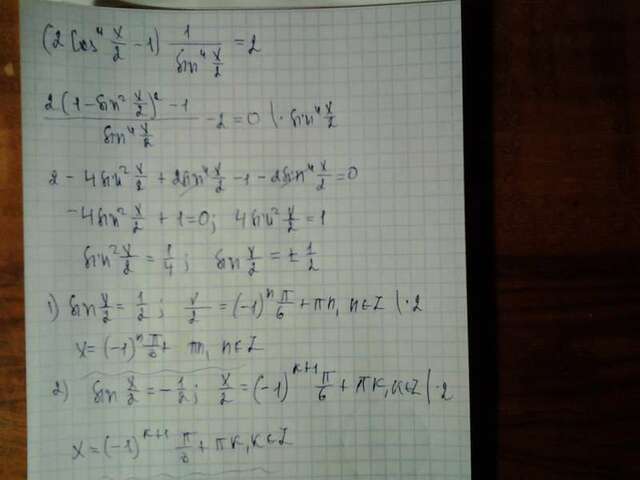 (2 cos⁴ x/2 - 1) 1/sin⁴ x/2 = 2
2(1 - sin² x/2)² - 1 / sin⁴ x/2 - 2 = 0 | · sin⁴ x/2
2 - 4 sin² x/2 + 2 sin⁴ x/2 - 1 - 2 sin⁴ x/2 = 0
-4 sin² x/2 + 1 = 0; 4 sin² x/2 = 1
sin² x/2 = 1/4; sin x/2 = ± 1/2
1) sin x/2 = 1/2; x/2 = (-1)ⁿ π/6 + πn, n∈Z | · 2
x = (-1)ⁿ π/ + πn, n∈Z
2) sin x/2 = -1/2; x/2 = (-1)ᵏ⁺¹ π/6 + πk, k∈Z | · 2
x = (-1)ᵏ⁺¹ π/ + πk, k∈Z